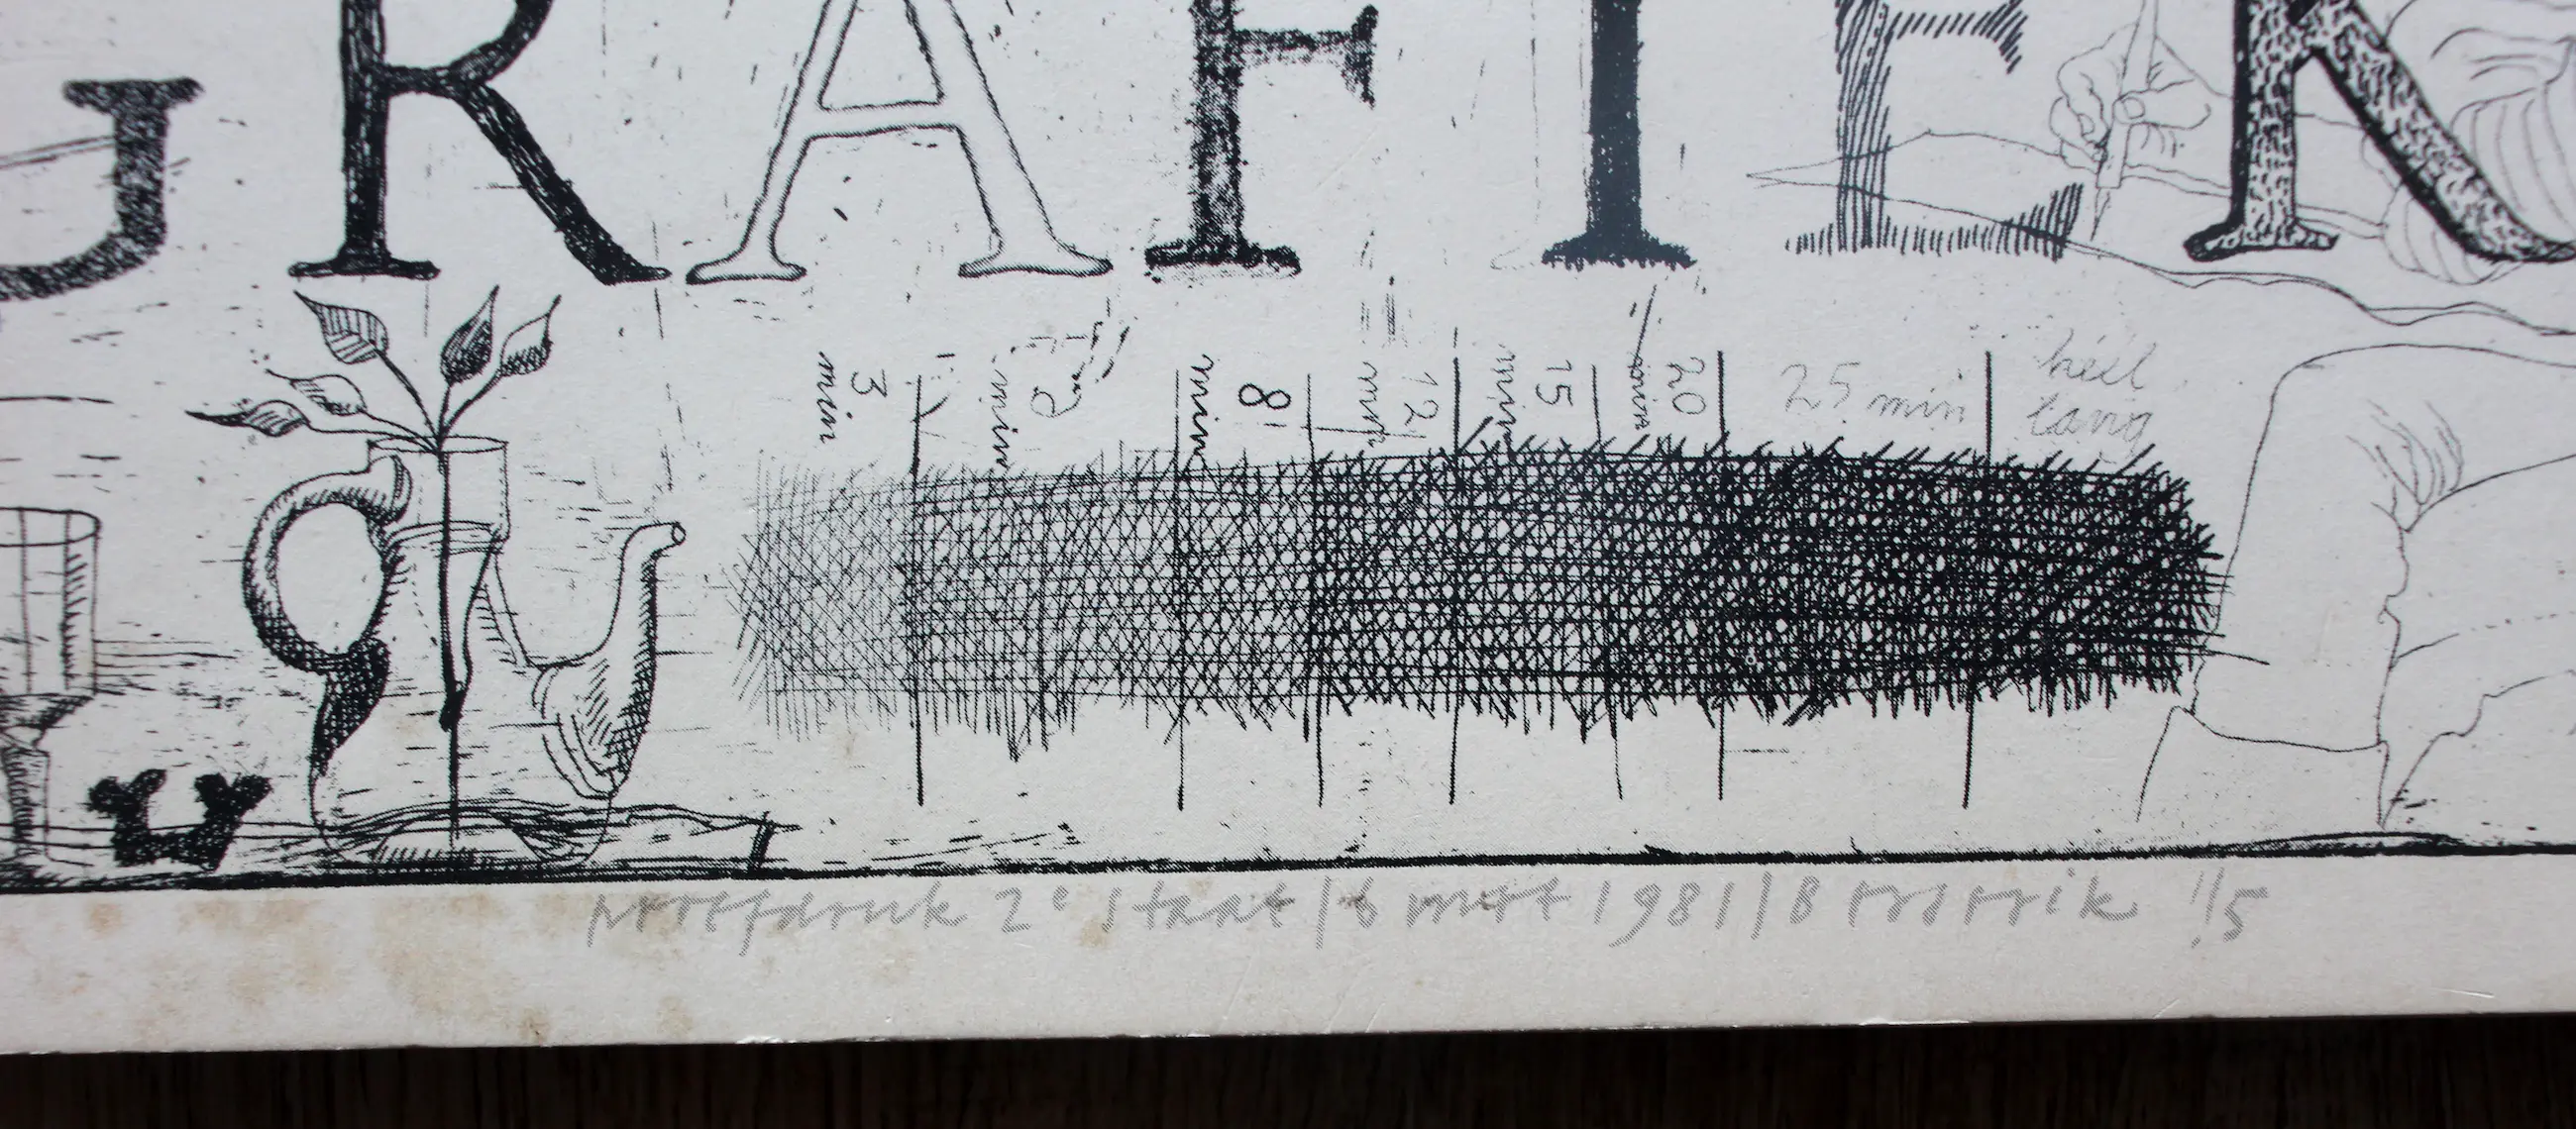 GRAFIEK
3 min
min
8 min
12 min
15 min
20 min
25 min
héél
lang
proefdruk 2e staat / 6 mrt 1981 /
1/5